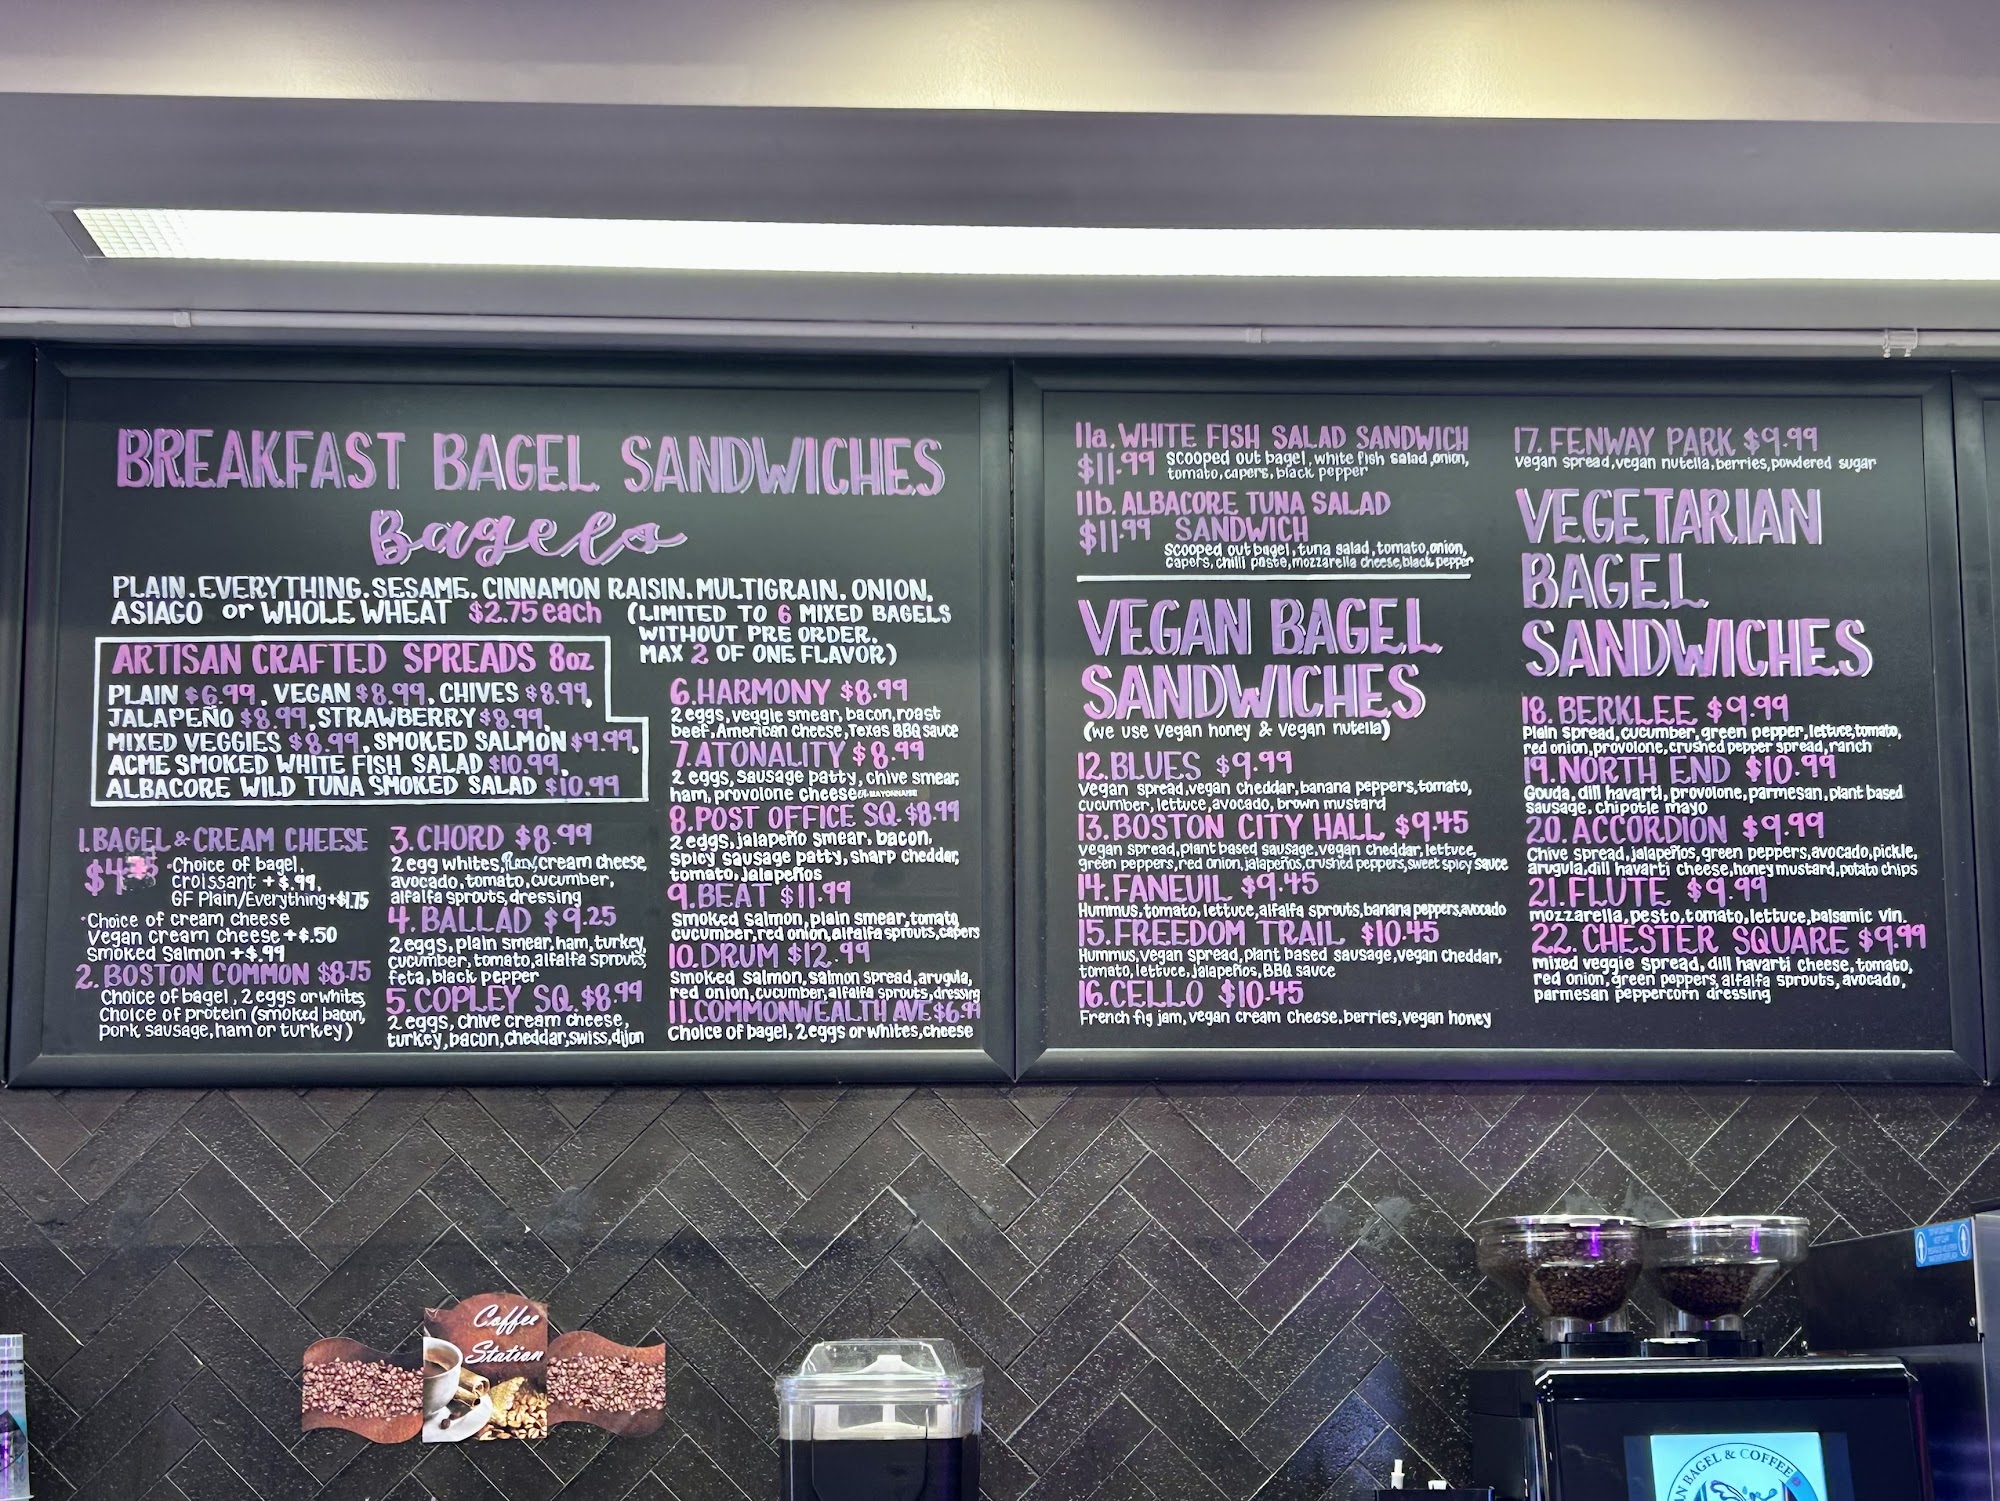 BREAKFAST BAGEL SANDWICHES
Bagels
PLAIN. EVERYTHING. SESAME. CINNAMON RAISIN. MULTIGRAIN. ONION.
ASIAGO or WHOLE WHEAT $2.75 each
(LIMITED TO 6 MIXED BAGELS
WITHOUT PRE ORDER.
MAX 2 OF ONE FLAVOR)
ARTISAN CRAFTED SPREADS 8oz
PLAIN $6.99, VEGAN $8.99, CHIVES $8.99,
JALAPEÑO $8.99, STRAWBERRY $8.99,
MIXED VEGGIES $8.99, SMOKED SALMON $9.99,
ACME SMOKED WHITE FISH SALAD $10.99,
ALBACORE WILD TUNA SMOKED SALAD $10.99
1. BAGEL & CREAM CHEESE
•Choice of bagel,
Croissant +$.99,
GF Plain/Everything +$1.75
•Choice of cream cheese
Vegan cream cheese +$.50
Smoked Salmon +$.99
2. BOSTON COMMON $8.75
Choice of bagel, 2 eggs or whites,
Choice of protein (smoked bacon,
pork sausage, ham or turkey)
3. CHORD $8.99
2 egg whites, cream cheese,
avocado, tomato, cucumber,
alfalfa sprouts, dressing
4. BALLAD $9.25
2 eggs, plain smear, ham, turkey,
cucumber, tomato, alfalfa sprouts,
feta, black pepper
5. COPLEY SQ. $8.99
2 eggs, chive cream cheese,
turkey, bacon, cheddar, swiss, dijon
6. HARMONY $8.99
2 eggs, veggie smear, bacon, roast
beef, American cheese, Texas BBQ sauce
7. ATONALITY $8.99
2 eggs, sausage patty, chive smear,
ham, provolone cheese, MAYONNAISE
8. POST OFFICE SQ. $8.99
2 eggs, jalapeño smear, bacon,
spicy sausage patty, sharp cheddar,
tomato, jalapeños
9. BEAT $11.99
Smoked salmon, plain smear, tomato,
cucumber, red onion, alfalfa sprouts, capers
10. DRUM $12.99
Smoked salmon, salmon spread, arugula,
red onion, cucumber, alfalfa sprouts, dressing
11. COMMONWEALTH AVE $6.99
Choice of bagel, 2 eggs or whites, cheese
11a. WHITE FISH SALAD SANDWICH
$11.99 scooped out bagel, white fish salad, onion,
tomato, capers, black pepper
11b. ALBACORE TUNA SALAD
$11.99 SANDWICH
scooped out bagel, tuna salad, tomato, onion,
capers, chilli paste, mozzarella cheese, black pepper
VEGAN BAGEL
SANDWICHES
(we use vegan honey & vegan nutella)
12. BLUES $9.99
Vegan spread, vegan cheddar, banana peppers, tomato,
cucumber, lettuce, avocado, brown mustard
13. BOSTON CITY HALL $9.45
Vegan spread, plant based sausage, vegan cheddar, lettuce,
green peppers, red onion, jalapeños, crushed peppers, sweet spicy sauce
14. FANEUIL $9.45
Hummus, tomato, lettuce, alfalfa sprouts, banana peppers, avocado
15. FREEDOM TRAIL $10.45
Hummus, vegan spread, plant based sausage, vegan cheddar,
tomato, lettuce, jalapeños, BBQ sauce
16. CELLO $10.45
French fig jam, vegan cream cheese, berries, vegan honey
17. FENWAY PARK $9.99
vegan spread, vegan nutella, berries, powdered sugar
VEGETARIAN
BAGEL
SANDWICHES
18. BERKLEE $9.99
Plain spread, cucumber, green pepper, lettuce, tomato,
red onion, provolone, crushed pepper spread, ranch
19. NORTH END $10.99
Gouda, dill havarti, provolone, parmesan, plant based
sausage, chipotle mayo
20. ACCORDION $9.99
Chive spread, jalapeños, green peppers, avocado, pickle,
arugula, dill havarti cheese, honey mustard, potato chips
21. FLUTE $9.99
mozzarella, pesto, tomato, lettuce, balsamic vin.
22. CHESTER SQUARE $9.99
mixed veggie spread, dill havarti cheese, tomato,
red onion, green peppers, alfalfa sprouts, avocado,
parmesan peppercorn dressing
Coffee
Station
BAGEL & COFFEE